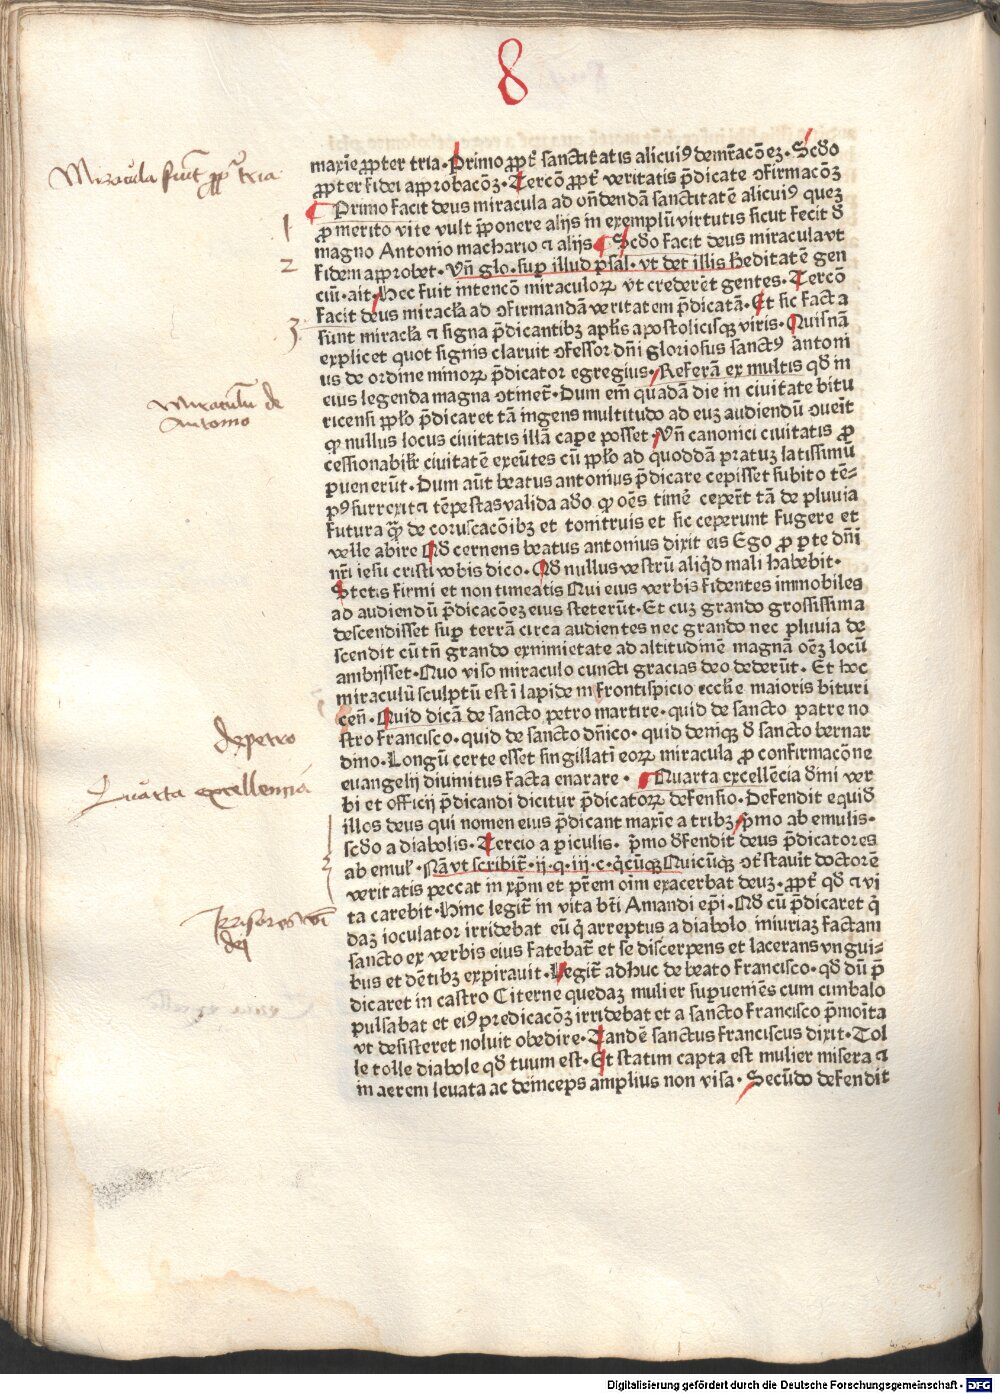 8
maxīe ꝓpter tria. Primo ꝓpt̄ sanctitatis alicuiꝰ demr̄acōeȝ. Scd̄o
ꝓpter fidei approbacōȝ. Tercō ꝓpt̄ veritatis p̄dicate ꝯfirmacōȝ
Primo facit deus miracula ad on̄dendā sanctitatē alicuiꝰ quēȝ
ꝓ merito vite vult p̄ponere alijs in exemplū virtutis sicut fecit d̄
magno Antonio machario ⁊ alijs. Scd̄o facit deus miracula vt
fidem approbet. Vn̄ glo. sup illud psal. vt det illis h̄editatē gen
ciū. ait. Hec fuit intencō miraculoꝝ vt crederēt gentes. Tercō
facit deus miracl̄a ad ꝯfirmandā veritatem p̄dicatā. Et sic facta
sunt miracl̄a ⁊ signa p̄dicantibꝫ apl̄is apostolicisqꝫ viris. Quisnā
explicet quot signis claruit ꝯfessor dn̄i gloriosus sanctꝰ antoni
us de ordine minoꝝ p̄dicator egregius. Referā ex multis qd̄ in
eius legenda magna ꝯtinet̄. Dum em̄ quadā die in ciuitate bitu
ricensi ppl̄o p̄dicaret tā ingens multitudo ad euȝ audiendū ꝯueīt
ꝙ nullus locus ciuitatis illā cape posset. Vn̄ canonici ciuitatis ꝓ
cessionabilr̄ ciuitatē exeūtes cū ppl̄o ad quoddā pratuȝ latissimū
puenerūt. Dum aūt beatus antonius p̄dicare cepisset subito tē-
pꝰ surrexit ⁊ tēpestas valida adeo ꝙ oēs timē cepert̄ tā de pluuia
futura q̄ꝫ de coruscacōibꝫ et tonitruis et sic ceperunt fugere et
velle abire Qd̄ cernens beatus antonius dixit eis Ego ꝓ pte dn̄i
nr̄i iesu cristi vobis dico. Qd̄ nullus vestrū aliqd̄ mali habebit.
Stetis firmi et non timeatis Qui eius verbis fidentes immobiles
ad audiendū p̄dicacōeȝ eius steterūt. Et cuȝ grando grossissima
descendisset sup terrā circa audientes nec grando nec pluuia de
scendit cū tn̄ grando ex nimietate ad altitudinē magnā oēȝ locū
ambijsset. Quo viso miraculo cuncti gracias deo dederūt. Et hoc
miraculū sculptū est ī lapide in frontispicio eccl̄ie maioris bituri
cen̄. Quid dicā de sancto petro martire. quid de sancto patre no
stro francisco. quid de sancto dn̄ico. quid deniqꝫ d̄ sancto bernar
dino. Longū certe esset singillati eoꝝ miracula ꝓ confirmacōne
euangelij diuinitus facta enarare. Quarta excellēcia diuini ver
bi et officij p̄dicandi dicitur p̄dicatoꝝ defensio. Defendit equid̄
illos deus qui nomen eius p̄dicant maxīe a tribꝫ. p̄mo ab emulis.
scd̄o a diabolis. Tercio a piculis. p̄mo d̄fendit deus p̄dicatores
ab emul̄. Nā vt scribit̄. ij. q. iij. c. q̄cūqꝫ. Quicūqꝫ ꝯt̄stauit doctorē
veritatis peccat in xp̄m et pr̄em oīm exacerbat deuȝ. ꝓpt̄ qd̄ ⁊ vi
ta carebit. Hinc legit̄ in vita bt̄i Amandi ep̄i. Qd̄ cū p̄dicaret q̄
daȝ ioculator irridebat eū q̄ arreptus a diabolo iniuriaȝ factam
sancto ex verbis eius fatebat̄ et se discerpens et lacerans vngui-
bus et dētibꝫ expirauit. Legit̄ adhuc de beato francisco. qd̄ dū p̄
dicaret in castro Citerne quedaȝ mulier supueniēs cum cimbalo
pulsabat et eiꝰ predicacōȝ irridebat et a sancto francisco p̄moīta
vt desisteret noluit obedire. Tandē sanctus franciscus dixit. Tol
le tolle diabole qd̄ tuum est. Et statim capta est mulier misera ⁊
in aerem leuata ac deinceps amplius non visa. Secūdo defendit
Miracula fiūt ꝓpt̄ tria
1
2
3
Miraculū de
Antonio
de petro
Quarta excellencia
Irrisores
dei
Digitalisierung gefördert durch die Deutsche Forschungsgemeinschaft - DFG